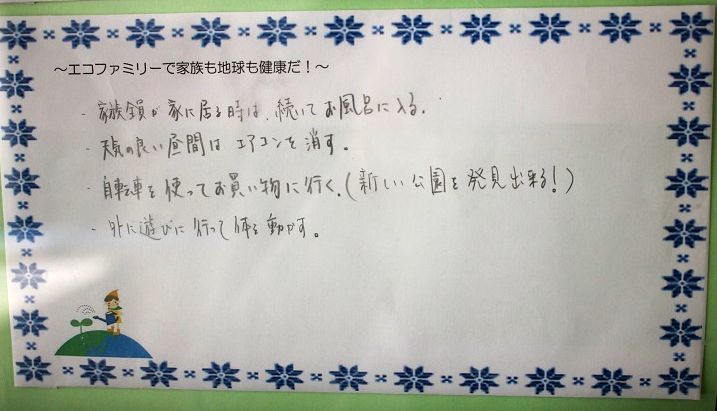 ～エコファミリーで家族も地球も健康だ！～
- 家族全員が家に居る時は、続いてお風呂に入る.
- 天気の良い昼間はエアコンを消す。
- 自転車を使ってお買い物に行く.(新しい公園を発見出来る!)
- 外に遊びに行って体を動かす。